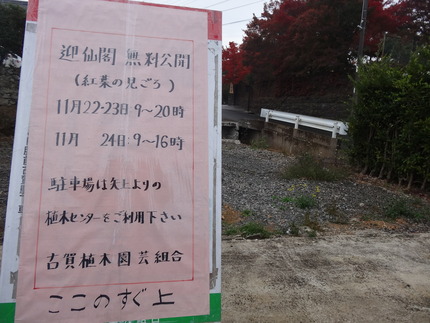 迎仙閣 無料公開
(紅葉の見ごろ)
11月22-23日9〜20時
11月 24日9〜16時
駐車場は矢上よりの
植木センターをご利用下さい
古賀植木園芸組合
ここのすぐ上